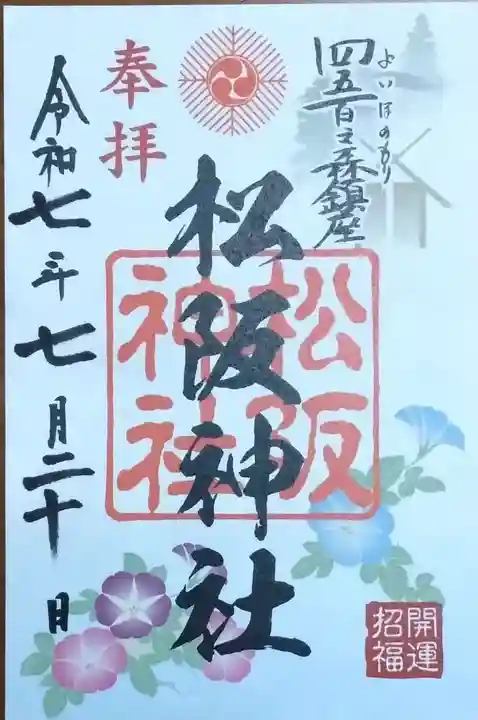 四五百之森鎮座
よいほのもり
奉拝
松阪神社
松阪神社
令和七年七月二十日
開運招福